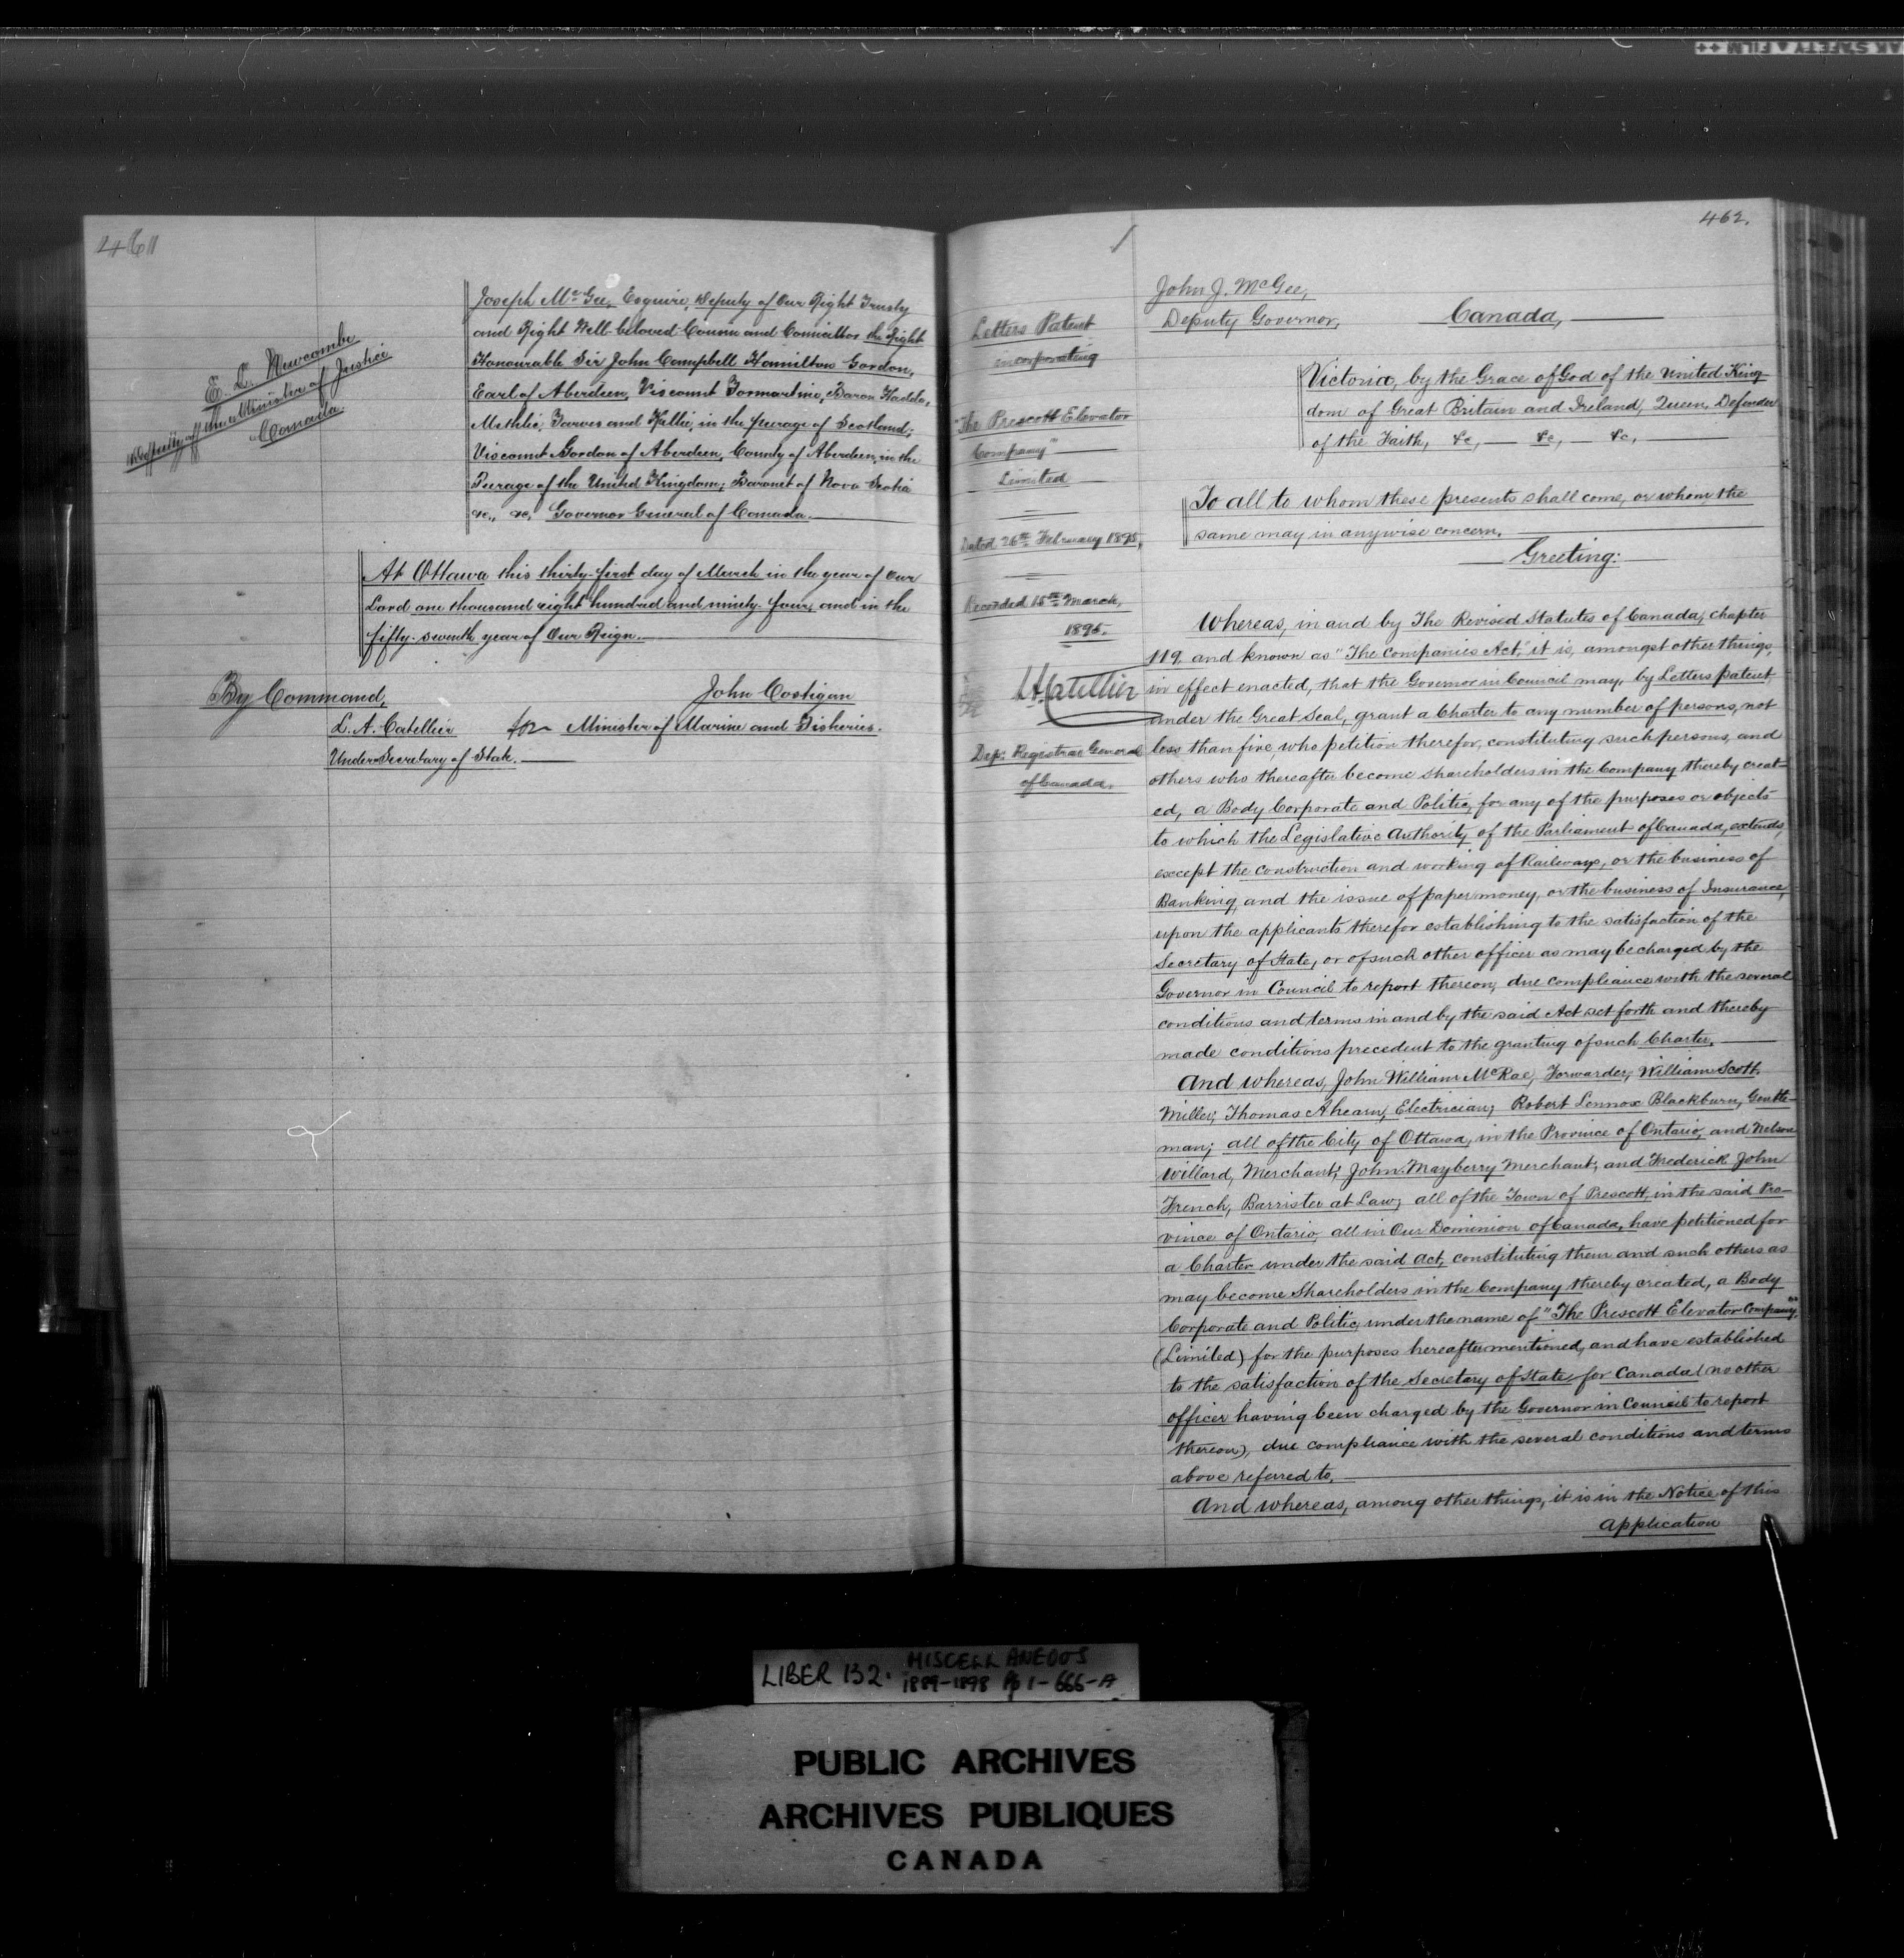 461
E. L. Newcombe
Deputy of the Minister of Justice
Canada.
Joseph McGee, Esquire, Deputy of Our Right Trusty
and Right Well-beloved Cousin and Councillor the Right
Honourable Sir John Campbell Hamilton Gordon,
Earl of Aberdeen, Viscount Formartine, Baron Haddo,
Methlic, Tarves and Kellie, in the peerage of Scotland;
Viscount Gordon of Aberdeen, County of Aberdeen, in the
Peerage of the United Kingdom; Baronet of Nova Scotia
&c., &c, Governor General of Canada.
At Ottawa this thirty-first day of March in the year of Our
Lord one thousand eight hundred and ninety-four, and in the
fifty-seventh year of Our Reign.
By Command,
John Costigan
L. A. Catellier for Minister of Marine and Fisheries.
Under-Secretary of State.
462.
Letters Patent
incorporating
"The Prescott Elevator
Company"
Limited
Dated 26th February 1895,
Recorded 15th March,
1895.
L A Catellier
Dep: Registrar General
of Canada.
John J. McGee,
Deputy Governor,
Canada,
Victoria, by the Grace of God of the United King
dom of Great Britain and Ireland, Queen, Defender
of the Faith, &c, — &c, — &c,
To all to whom these presents shall come, or whom the
same may in anywise concern,
Greeting:
Whereas, in and by The Revised Statutes of Canada, chapter
119, and known as "The Companies Act," it is, amongst other things,
in effect enacted, that the Governor in Council may, by Letters patent
under the Great Seal, grant a Charter to any number of persons, not
less than five, who petition therefor, constituting such persons, and
others who thereafter become shareholders in the Company thereby creat-
ed, a Body Corporate and Politic, for any of the purposes or objects
to which the Legislative Authority of the Parliament of Canada, extends,
except the construction and working of Railways, or the business of
Banking, and the issue of paper money, or the business of Insurance,
upon the applicants therefor establishing to the satisfaction of the
Secretary of State, or of such other officer as may be charged by the
Governor in Council to report thereon, due compliance with the several
conditions and terms in and by the said Act set forth and thereby
made conditions precedent to the granting of such Charter.
And whereas, John William McRae, Forwarder, William Scott
Miller, Thomas Ahearn, Electrician, Robert Lennox Blackburn, Gentle-
man; all of the City of Ottawa, in the Province of Ontario, and Nelson
Willard, Merchant, John Mayberry Merchant, and Frederick John
French, Barrister at Law, all of the Town of Prescott, in the said Pro-
vince of Ontario, all in Our Dominion of Canada, have petitioned for
a Charter under the said Act, constituting them and such others as
may become Shareholders in the Company thereby created, a Body
Corporate and Politic, under the name of "The Prescott Elevator Company,"
(Limited) for the purposes hereafter mentioned, and have established
to the satisfaction of the Secretary of State, for Canada (no other
officer having been charged by the Governor in Council to report
thereon), due compliance with the several conditions and terms
above referred to.
And whereas, among other things, it is in the Notice of this
Application
LIBER 132. MISCELLANEOUS
1889-1898 Pg 1-666-A
PUBLIC ARCHIVES
ARCHIVES PUBLIQUES
CANADA